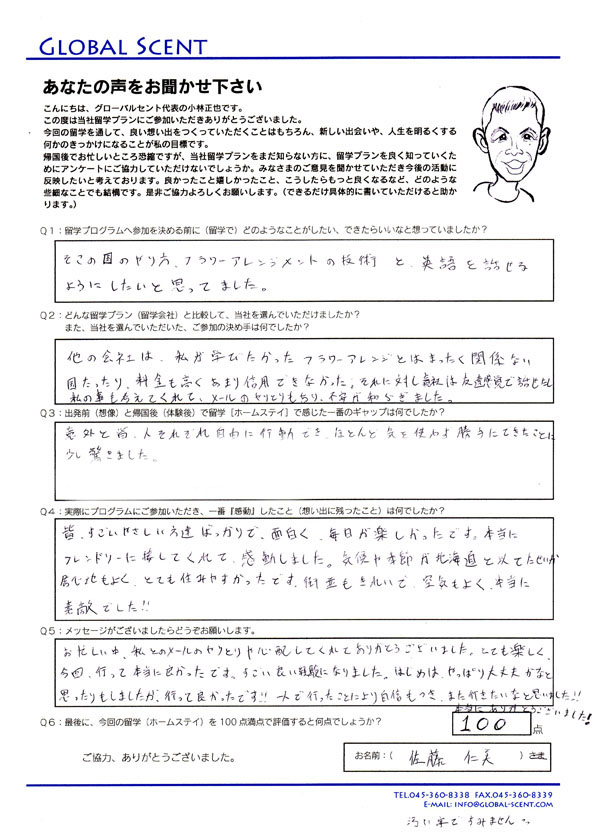 GLOBAL SCENT
あなたの声をお聞かせ下さい
こんにちは、グローバルセント代表の小林正也です。
この度は当社留学プランにご参加いただきありがとうございました。
今回の留学を通して、良い想い出をつくっていただくことはもちろん、新しい出会いや、人生を明るくする
何かのきっかけになることが私の目標です。
帰国後でお忙しいところ恐縮ですが、当社留学プランをまだ知らない方に、留学プランを良く知っていくた
めにアンケートにご協力していただけないでしょうか。みなさまのご意見を聞かせていただき今後の活動に
反映したいと考えております。良かったこと嬉しかったこと、こうしたらもっと良くなるなど、どのような
些細なことでも結構です。是非ご協力よろしくお願いします。（できるだけ具体的に書いていただけると助か
ります。）
Q1：留学プログラムへ参加を決める前に（留学で）どのようなことがしたい、できたらいいなと想っていましたか？
そこの国のやり方、フラワーアレンジメントの技術 と、英語を話せる
ようにしたいと思ってました。
Q2：どんな留学プラン（留学会社）と比較して、当社を選んでいただけましたか？
また、当社を選んでいただいた、ご参加の決め手は何でしたか？
他の会社は、私が学びたかった フラワーアレンジとはまったく関係ない
国だったり、料金も高く あまり信用できなかった。それに対し貴社は友達感覚で話せたし
私の事も考えてくれて、メールのやりとりもあり、不安が和らぎました。
Q3：出発前（想像）と帰国後（体験後）で留学［ホームステイ］で感じた一番のギャップは何でしたか？
意外と皆、人それぞれ自由に行動でき、ほとんど気を使わず勝手にできたことに
少し驚きました。
Q4：実際にプログラムにご参加いただき、一番『感動』したこと（想い出に残ったこと）は何でしたか？
皆、すごいやさしい方達ばっかりで、面白く、毎日が楽しかったです。本当に
フレンドリーに接してくれて、感動しました。気候や季節が北海道と似てたせいか
居心地もよく、とても住みやすかったです。街並もきれいで、空気もよく、本当に
素敵でした!!
Q5：メッセージがございましたらどうぞお願いします。
お忙しい中、私とのメールのやりとりや心配してくれてありがとうございました。とても楽しく、
今回、行って本当に良かったです。すごい良い経験になりました。はじめは、やっぱり大丈夫かなと
思ったりもしましたが、行って良かったです!! 一人で行ったことにより自信もつき、また行きたいなと思いました!!
本当にありがとうございました!
Q6：最後に、今回の留学（ホームステイ）を100点満点で評価すると何点でしょうか？
100 点
ご協力、ありがとうございました。
お名前：（ 佐藤 仁美 ）さま
TEL.045-360-8338 FAX.045-360-8339
E-MAIL: INFO@GLOBAL-SCENT.COM
汚い字ですみません